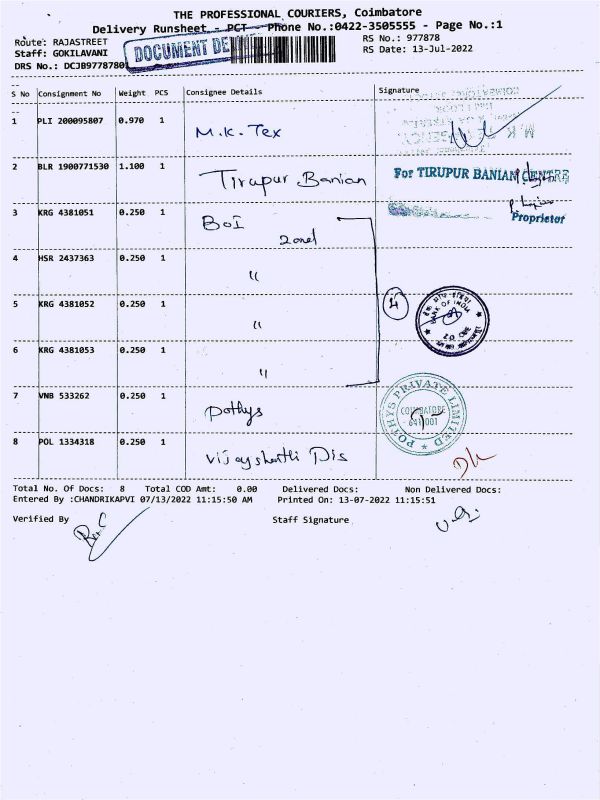 THE PROFESSIONAL COURIERS, Coimbatore
Delivery Runsheet - PCT - Phone No.:0422-3505555 - Page No.:1
Route: RAJASTREET
RS No.: 977878
Staff: GOKILAVANI
DOCUMENT DE
RS Date: 13-Jul-2022
DRS No.: DCJB9778780
S No Consignment No Weight PCS Consignee Details Signature
1 PLI 200095807 0.970 1 M.K. Tex
2 BLR 1900771530 1.100 1 Tirupur Banian For TIRUPUR BANIAN CENTRE
Proprietor
3 KRG 4381051 0.250 1 BOI
Zonal
4 HSR 2437363 0.250 1 "
4
5 KRG 4381052 0.250 1 "
BANK OF INDIA
6 KRG 4381053 0.250 1 "
7 VNB 533262 0.250 1 Pothys
POTHYS PRIVATE LIMITED
COIMBATORE
641 001
8 POL 1334318 0.250 1 Vijayshanthi Dis
Total No. Of Docs: 8 Total COD Amt: 0.00 Delivered Docs: Non Delivered Docs:
Entered By :CHANDRIKAPVI 07/13/2022 11:15:50 AM Printed On: 13-07-2022 11:15:51
Verified By Staff Signature